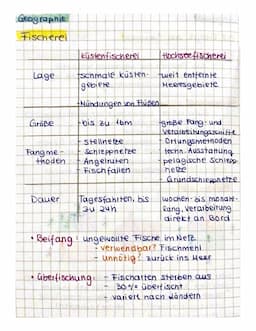 Geographie
Fischerei
Küstenfischerei Hochseefischerei
Lage -schmale Küsten- -weit entfernte
gebiete Meeresgebiete
-Mündungen von Flüßen
Größe -bis zu 16m -große Fang- und
Verarbeitungsschiffe
Fangme- - Stellnetze -Ortungsmethoden
thoden - Schleppnetze techn. Ausstattung
- Angelruten -pelagische Schlepp
- Fischfallen netze
- Grundschleppnetze
Dauer Tagesfahrten, bis wochen- bis monate-
zu 24h lang, Verarbeitung
direkt an Bord
• Beifang: ungewollte Fische im Netz
- verwendbar? Fischmehl
- unnötig? zurück ins Meer
• Überfischung: - Fischarten sterben aus
- 30% überfischt
- variiert nach Ländern